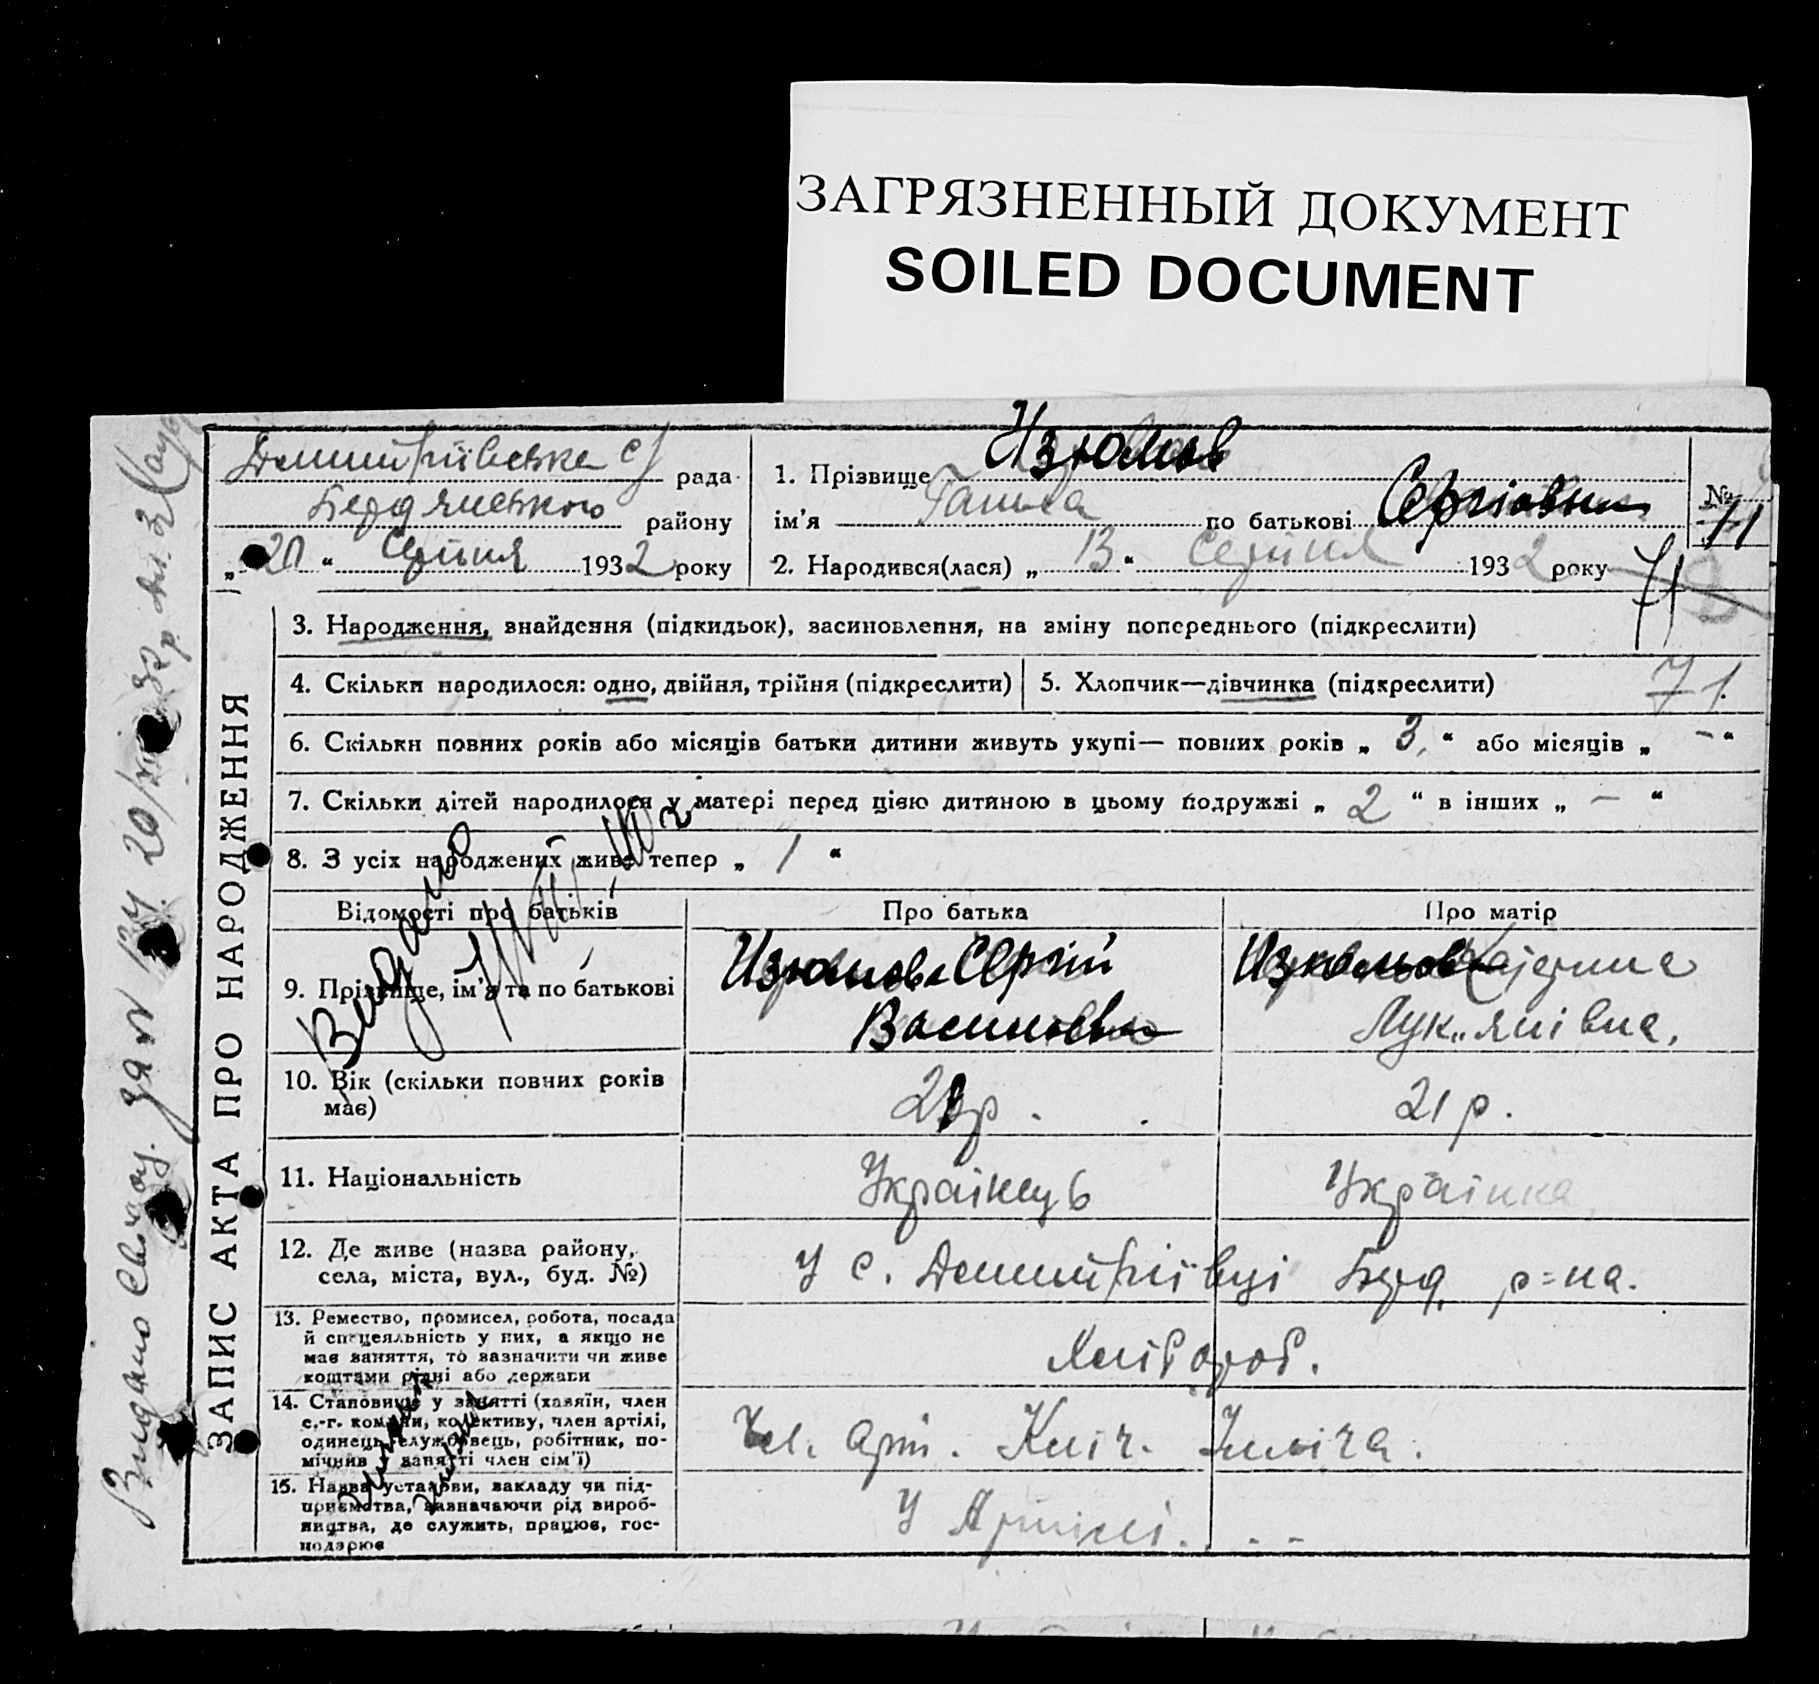 ЗАГРЯЗНЕННЫЙ ДОКУМЕНТ
SOILED DOCUMENT
Демитріївська с/ рада
Бердянського району
„20“ Серпня 1932 року
1. Прізвище Изюмов
ім'я Ганна по батькові Сергіовна
2. Народився(лася) „13“ Серпня 1932 року
№ 71
71
71.
ЗАПИС АКТА ПРО НАРОДЖЕННЯ
3. Народження, знайдення (підкидьок), засиновлення, на зміну попереднього (підкреслити)
4. Скільки народилося: одно, двійня, трійня (підкреслити)
5. Хлопчик—дівчинка (підкреслити)
6. Скільки повних років або місяців батьки дитини живуть укупі— повних років „ 3, “ або місяців „ – “
7. Скільки дітей народилося у матері перед цією дитиною в цьому подружжі „ 2 “ в інших „ – “
8. З усіх народжених живе тепер „ 1 “
Видано
Відомості про батьків
Про батька
Про матір
9. Прізвище, ім'я та по батькові
Изюмов Сергій
Васильев
Изюмова Катерина
Лук"янівна.
10. Вік (скільки повних років
має)
21р.
21 р.
11. Національність
Українець
Українка
12. Де живе (назва району,
села, міста, вул., буд. №)
У с. Демитріївці Берд. р=на.
13. Ремество, промисел, робота, посада
й спецеяльність у них, а якщо не
має заняття, то зазначити чи живе
коштами рідні або держави
Хлібороб.
14. Становище у занятті (хазяїн, член
с.-г. комуни, колективу, член артілі,
одинець, службовець, робітник, по-
мічнив у занятті член сім'ї)
Чл. арт. Кліч. Ілліча.
15. Назва установи, закладу чи під-
приємства, зазначаючи рід вироб-
ництва, де служить, працює, гос-
подарює
У Артілі. - -
Видано